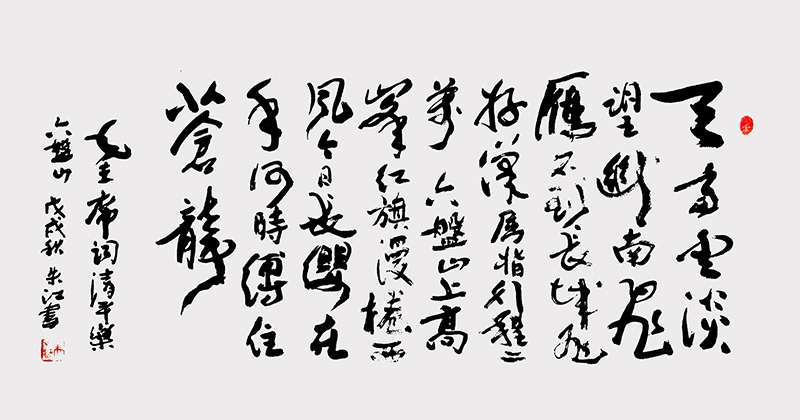 天高雲淡
望斷南飛
雁不到長城非
好漢屈指行程二
萬六盤山上高
峯紅旗漫捲西
風今日長纓在
手何時縛住
蒼龍
毛主席詞清平樂
六盤山戊戌秋朱江書